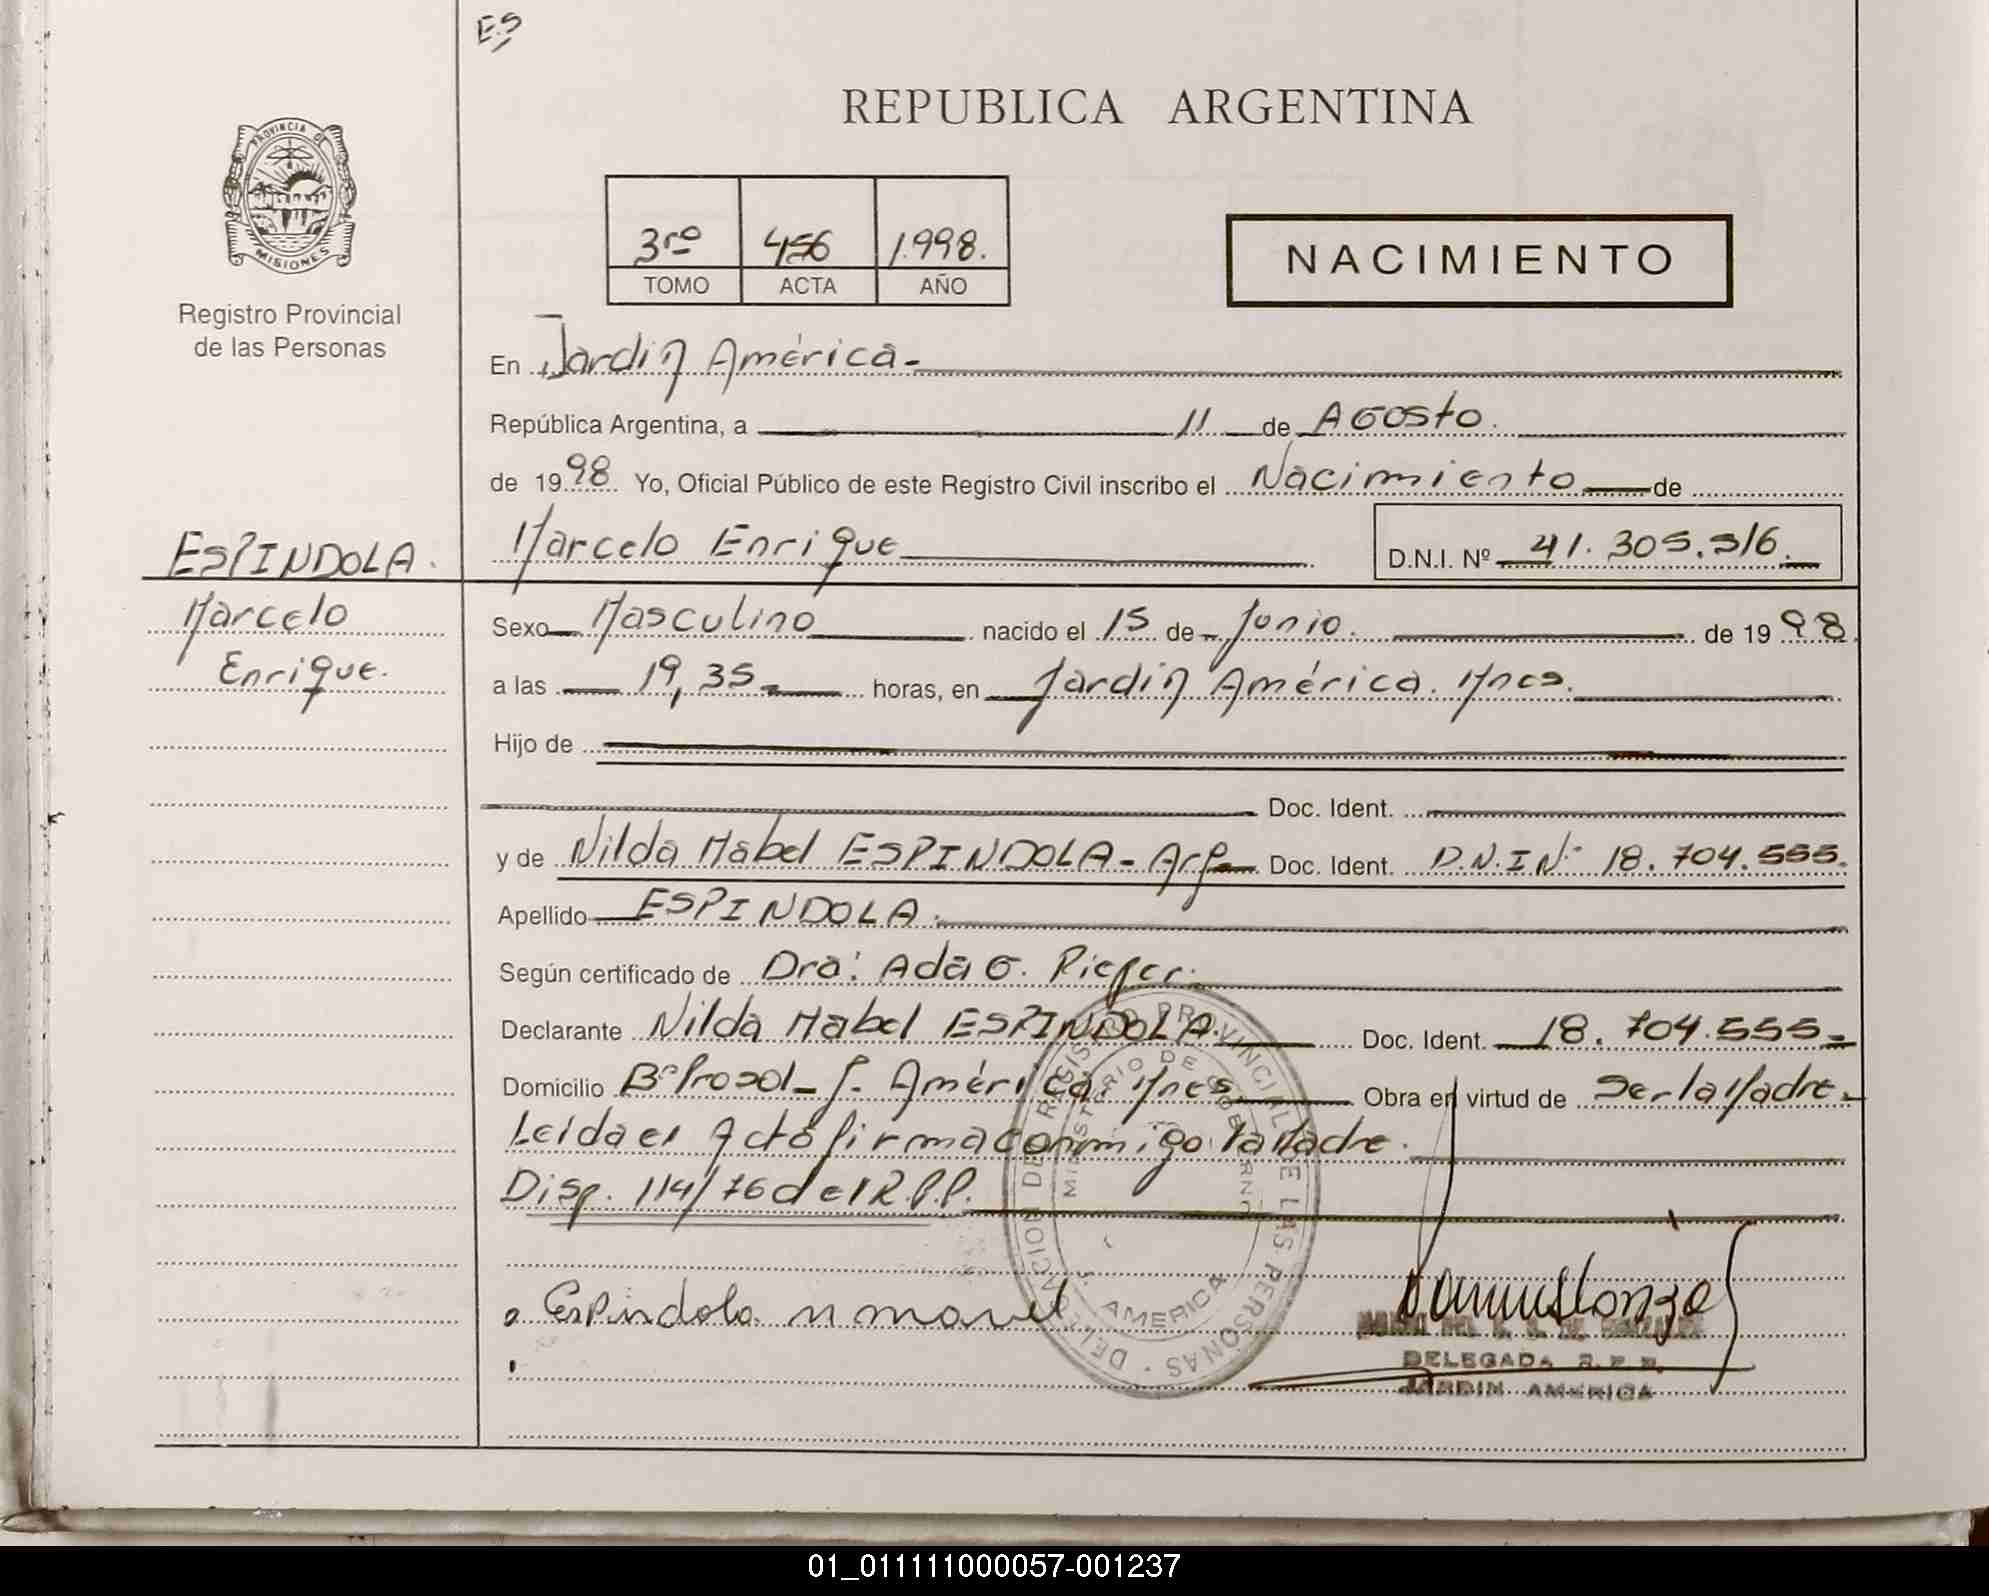 ES
REPUBLICA ARGENTINA
PROVINCIA DE
MISIONES
Registro Provincial
de las Personas
3ro 456 1.998.
TOMO ACTA AÑO
NACIMIENTO
En Jardin América-
República Argentina, a 11 de Agosto.
de 1998 Yo, Oficial Público de este Registro Civil inscribo el Nacimiento de
ESPINDOLA. Marcelo Enrique D.N.I. Nº 41.305.316.
Marcelo
Enrique.
Sexo Masculino nacido el 15 de Junio. de 1998.
a las 19,35 horas, en Jardin América. Mnes.
Hijo de
Doc. Ident.
y de Nilda Mabel ESPINDOLA - Arg. Doc. Ident. D.N.I Nº 18.704.555.
Apellido ESPINDOLA.
Según certificado de Dra: Ada G. Rieger.
Declarante Nilda Mabel ESPINDOLA. Doc. Ident. 18.704.555-
Domicilio Bº Prosol - J. América. Mnes Obra en virtud de Ser la Madre.
Leida el Acta firma conmigo la Madre.
Disp. 114/76 del R.P.P.
DELEGACION DE REGISTRO PROVINCIAL DE LAS PERSONAS
MINISTERIO DE GOBIERNO
AMERICA
Espindola n mavel
DE GONZALEZ
DELEGADA R.P.P.
JARDIN AMERICA
01_011111000057-001237